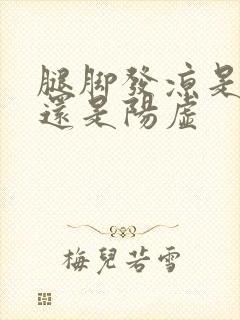 腿脚發凉是
還是陽虛
梅兒若雪